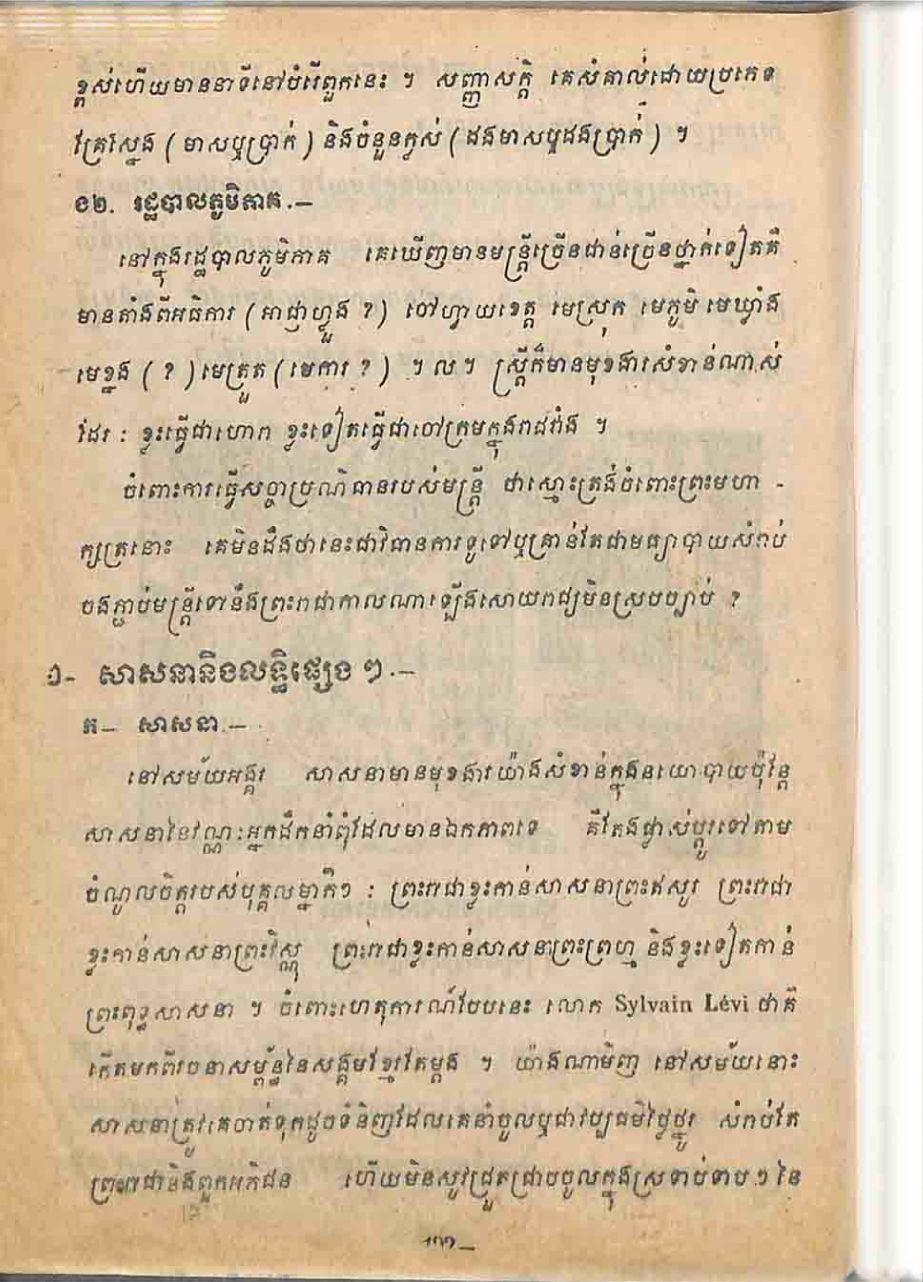 ខ្ពស់ហើយមាននាទីនៅបំរើពួកនេះ ។ សញ្ញាសក្តិ គេសំគាល់ដោយប្រភេទ
គ្រែស្នែង ( មាសឬប្រាក់ ) និងចំនួនក្លស់ ( ដងមាសឬដងប្រាក់ ) ។
ង២. រដ្ឋបាលភូមិភាគ.—
នៅក្នុងរដ្ឋបាលភូមិភាគ គេឃើញមានមន្ត្រីច្រើនជាន់ច្រើនថ្នាក់ទៀតគឺ
មានតាំងពីអធិការ ( អាជ្ញាហ្លួង ? ) ចៅហ្វាយខេត្ត មេស្រុក មេភូមិ មេឃ្លាំង
មេខ្នង ( ? ) មេត្រួត ( មេការ ? ) ។ ល ។ ស្ត្រីក៏មានមុខងារសំខាន់ណាស់
ដែរ : ខ្លះធ្វើជាហោរា ខ្លះទៀតធ្វើជាចៅក្រមក្នុងរាជវាំង ។
ចំពោះការធ្វើសច្ចាប្រណិធានរបស់មន្ត្រី ថាស្មោះត្រង់ចំពោះព្រះមហា -
ក្សត្រនោះ គេមិនដឹងថានេះជាវិធានការទូទៅឬគ្រាន់តែជាមធ្យោបាយសំរាប់
ចងភ្ជាប់មន្ត្រីទៅនឹងព្រះរាជាកាលណាឡើងសោយរាជ្យមិនស្របច្បាប់ ?
១- សាសនានិងលទ្ធិផ្សេង ៗ.—
ក— សាសនា.—
នៅសម័យអង្គរ សាសនាមានមុខងារយ៉ាងសំខាន់ក្នុងនយោបាយប៉ុន្តែ
សាសនានៃវណ្ណៈអ្នកដឹកនាំពុំដែលមានឯកភាពទេ គឺតែងផ្លាស់ប្តូរទៅតាម
ចំណូលចិត្តរបស់បុគ្គលម្នាក់ៗ : ព្រះរាជាខ្លះកាន់សាសនាព្រះឥសូរ ព្រះរាជា
ខ្លះកាន់សាសនាព្រះវិស្ណុ ព្រះរាជាខ្លះកាន់សាសនាព្រះព្រហ្ម និងខ្លះទៀតកាន់
ព្រះពុទ្ធសាសនា ។ ចំពោះហេតុការណ៍បែបនេះ លោក Sylvain Lévi ថាគឺ
កើតមកពីរចនាសម្ព័ន្ធនៃសង្គមខ្មែរតែម្តង ។ យ៉ាងណាមិញ នៅសម័យនោះ
សាសនាត្រូវគេចាត់ទុកដូចទំនិញដែលគេនាំចូលឬជាវប្បធម៌ថ្លៃថ្នូរ សំរាប់តែ
ព្រះរាជានិងពួកអភិជន ហើយមិនសូវជ្រួតជ្រាបចូលក្នុងស្រទាប់ទាប ៗ នៃ